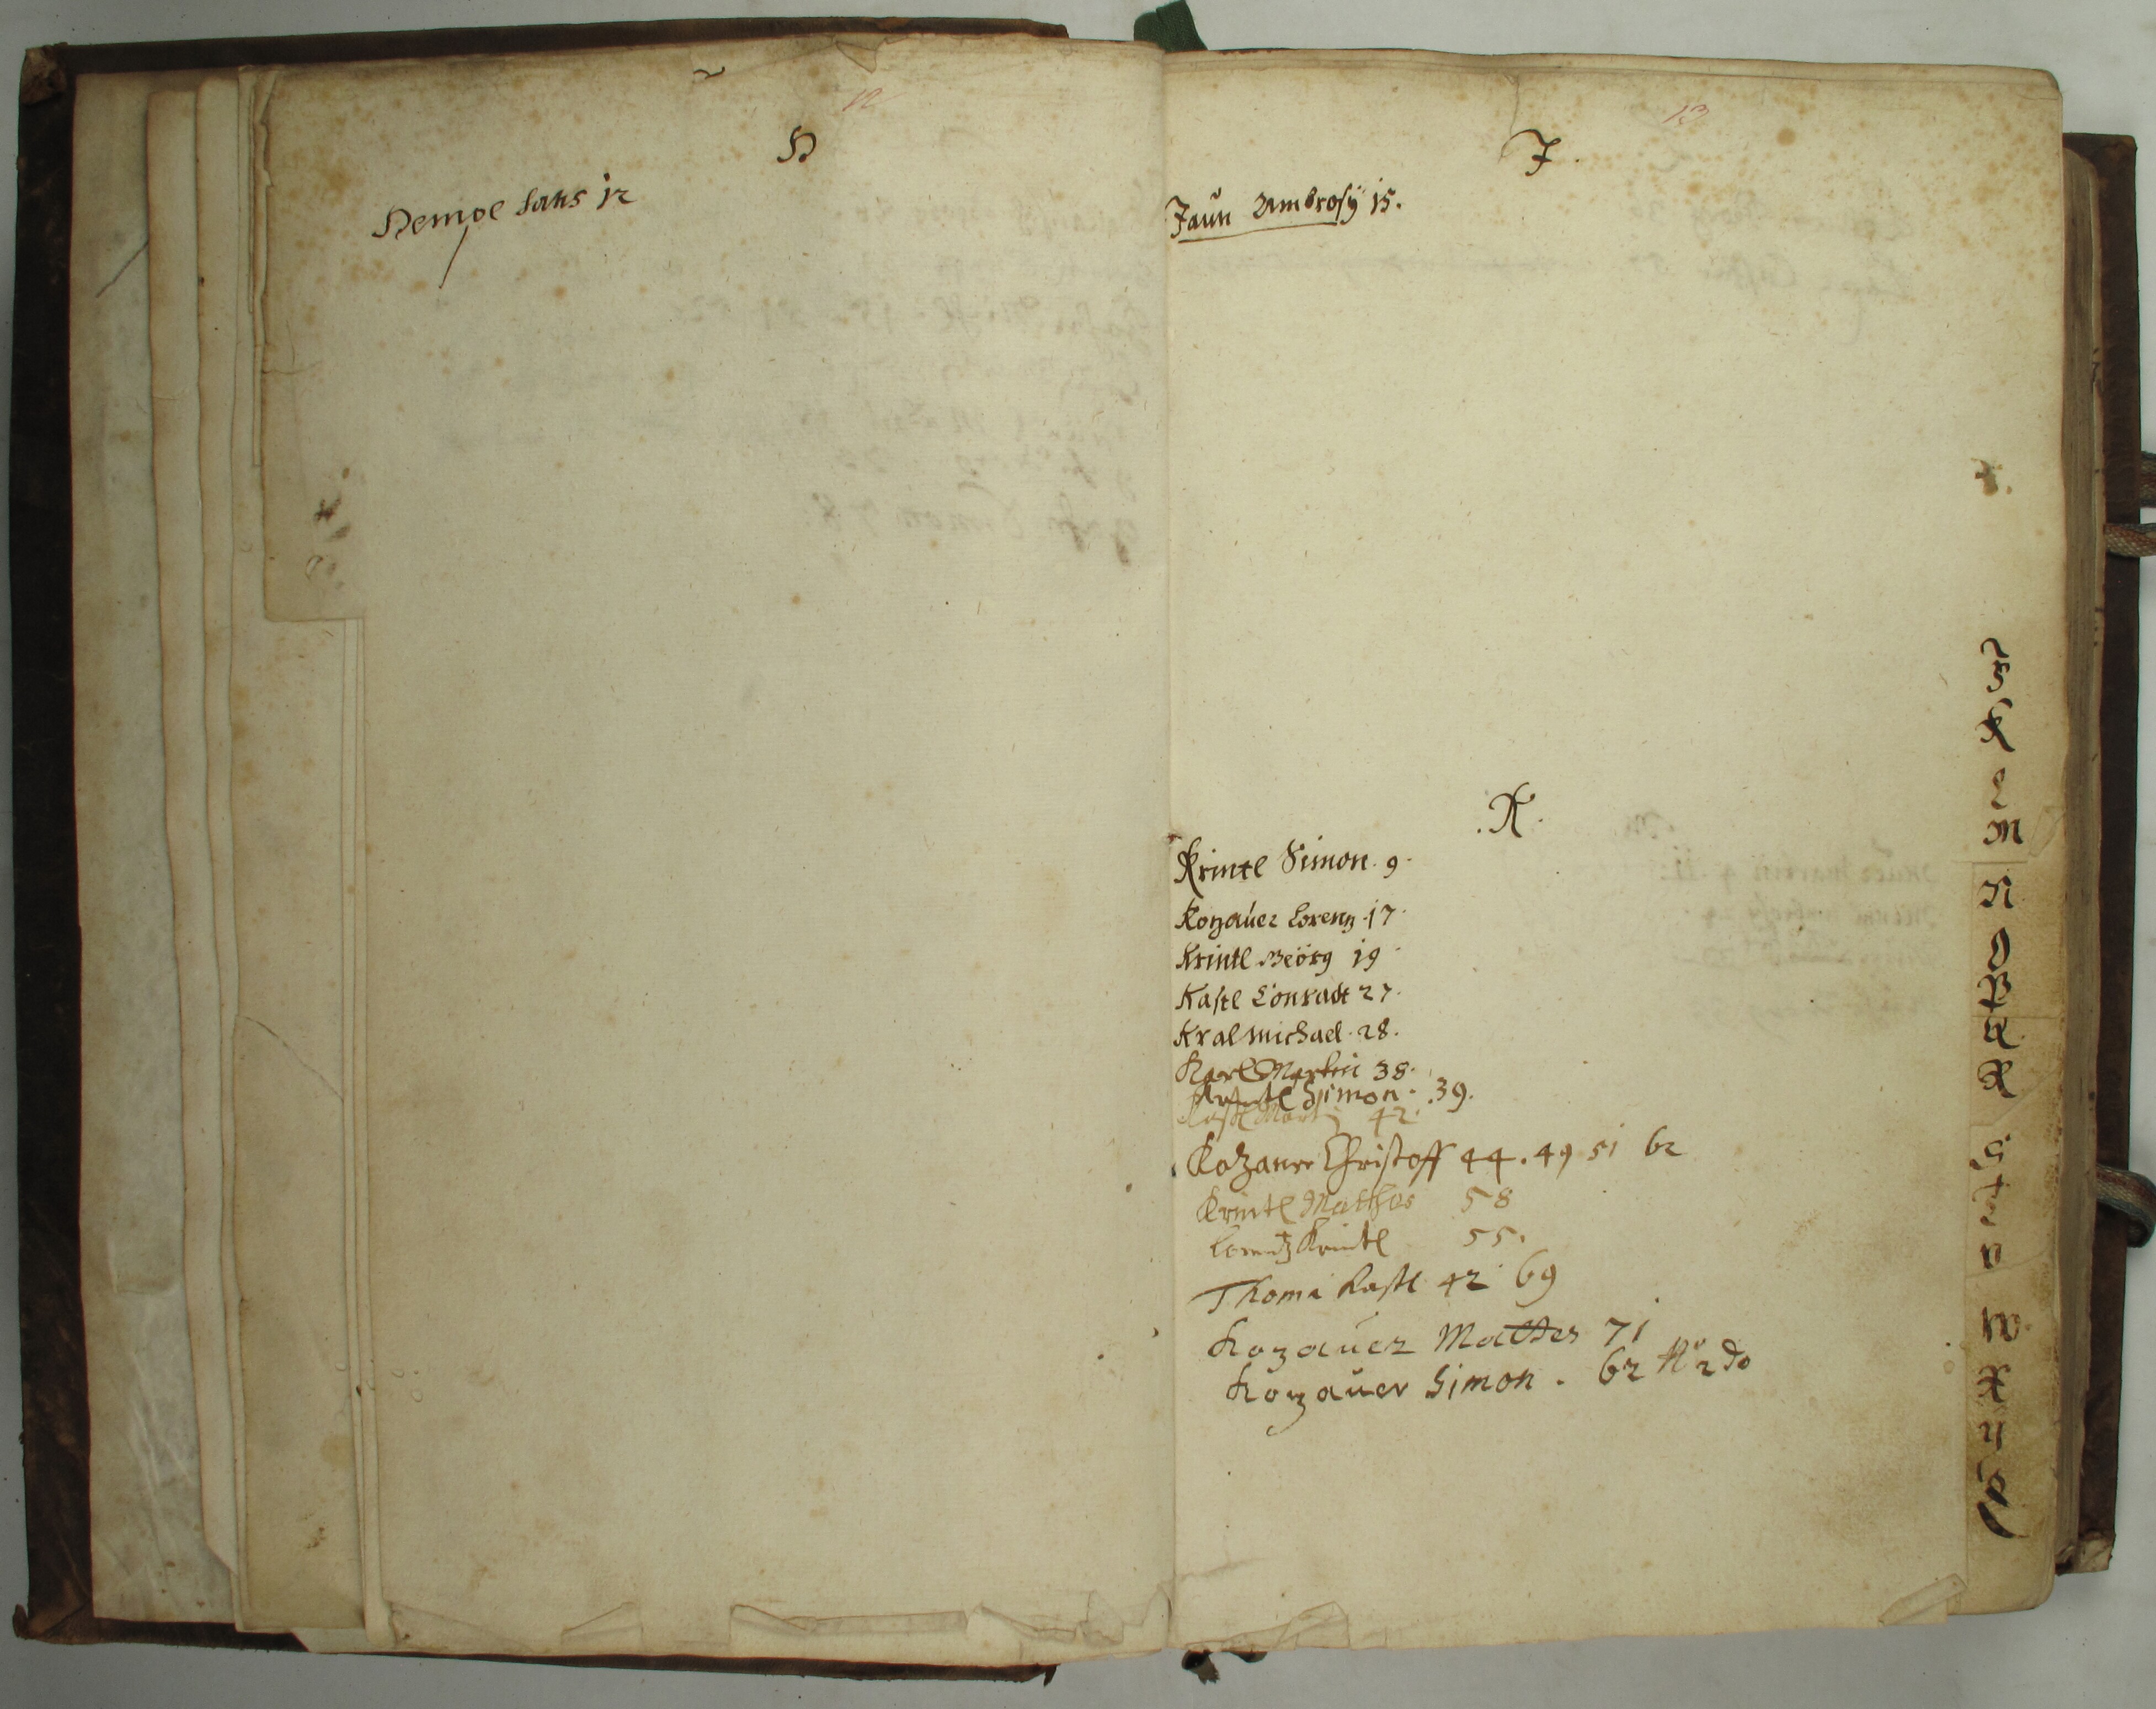 12
H
Hempe hans 12
13
J.
Jaun Ambrosÿ 15.
.K.
Krintl Simon. 9.
Kozauer Lorenz. 17.
Krintl Geörg 19
Kastl Conradt 27.
Kral Michael. 28.
Karl Martin 38.
Simon. .39.
Kastl 42.
Kozauer Christoff 44. 49 51 62
Krintl Mathes 58
Lorentz Krintl 55.
Thoma Kastl 42 69
Kozauer Mathes 71
Kozauer Simon. 62 No 2do
J
K
L
M
N
O
P
Q
R
S
T
V
W
X
Y
Z